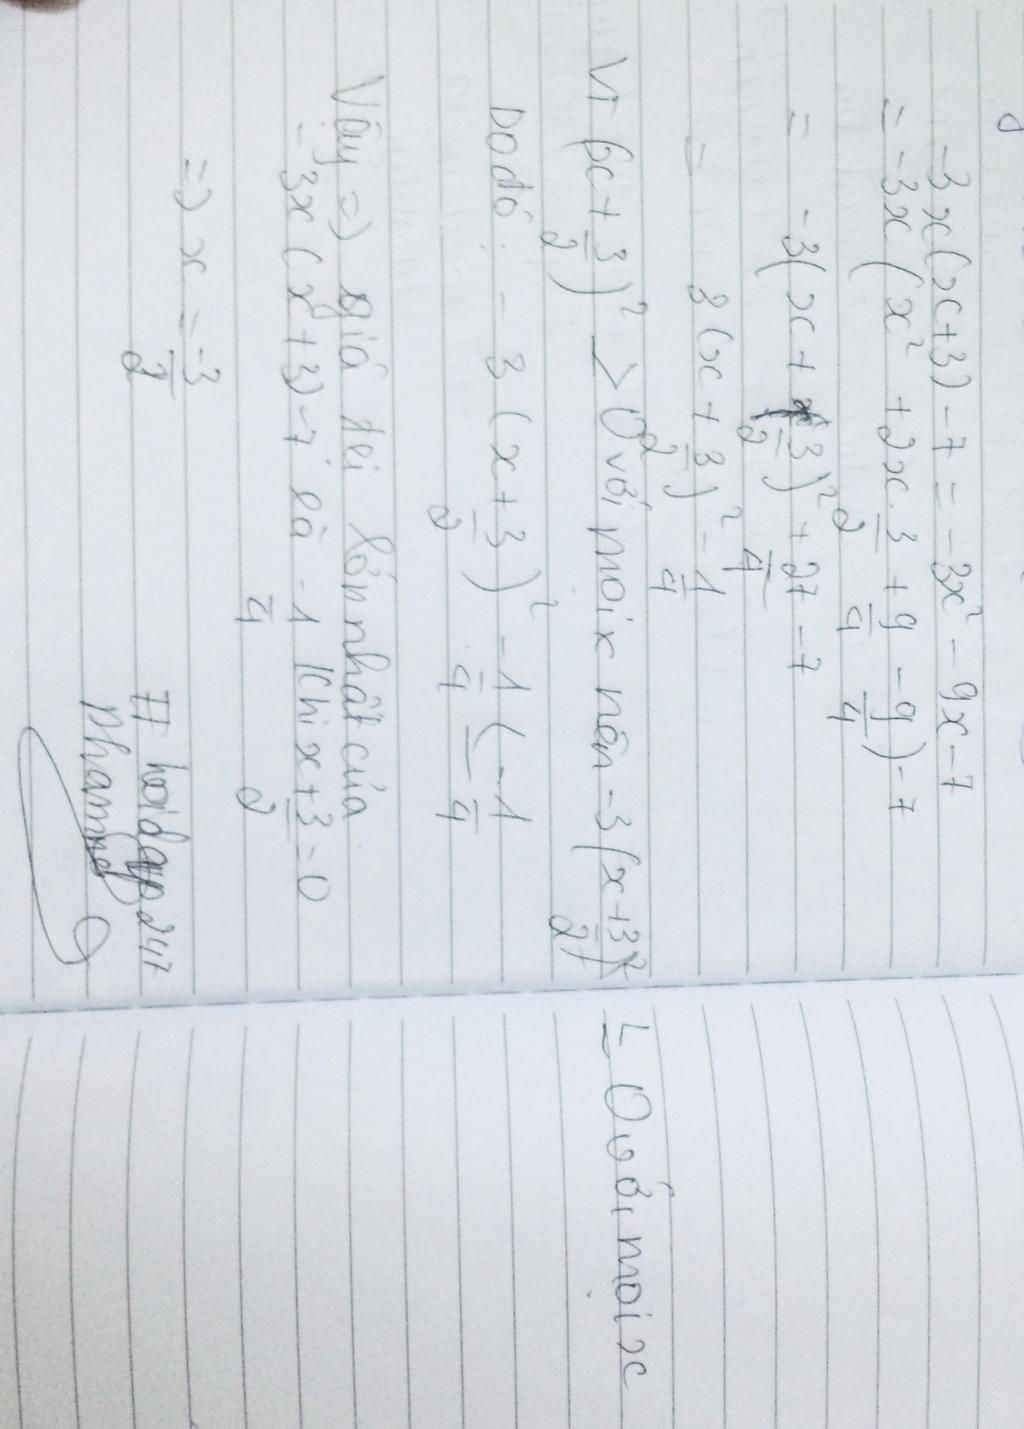 -3x(x+3)-7 = -3x² - 9x - 7
= -3x(x² + 2x.3/2 + 9/4 - 9/4) - 7
= -3(x + 3/2)² + 27/4 - 7
= 3(x + 3/2)² - 1/4
Vì (x + 3/2)² ≥ 0 với mọi x nên -3(x+3/2)² ≤ 0 với mọi x
Do đó: -3(x+3/2)² - 1/4 ≤ -1/4
Vậy => giá trị lớn nhất của
-3x(x+3)-7 là -1/4 khi x+3/2=0
=> x = -3/2
# hoidap247